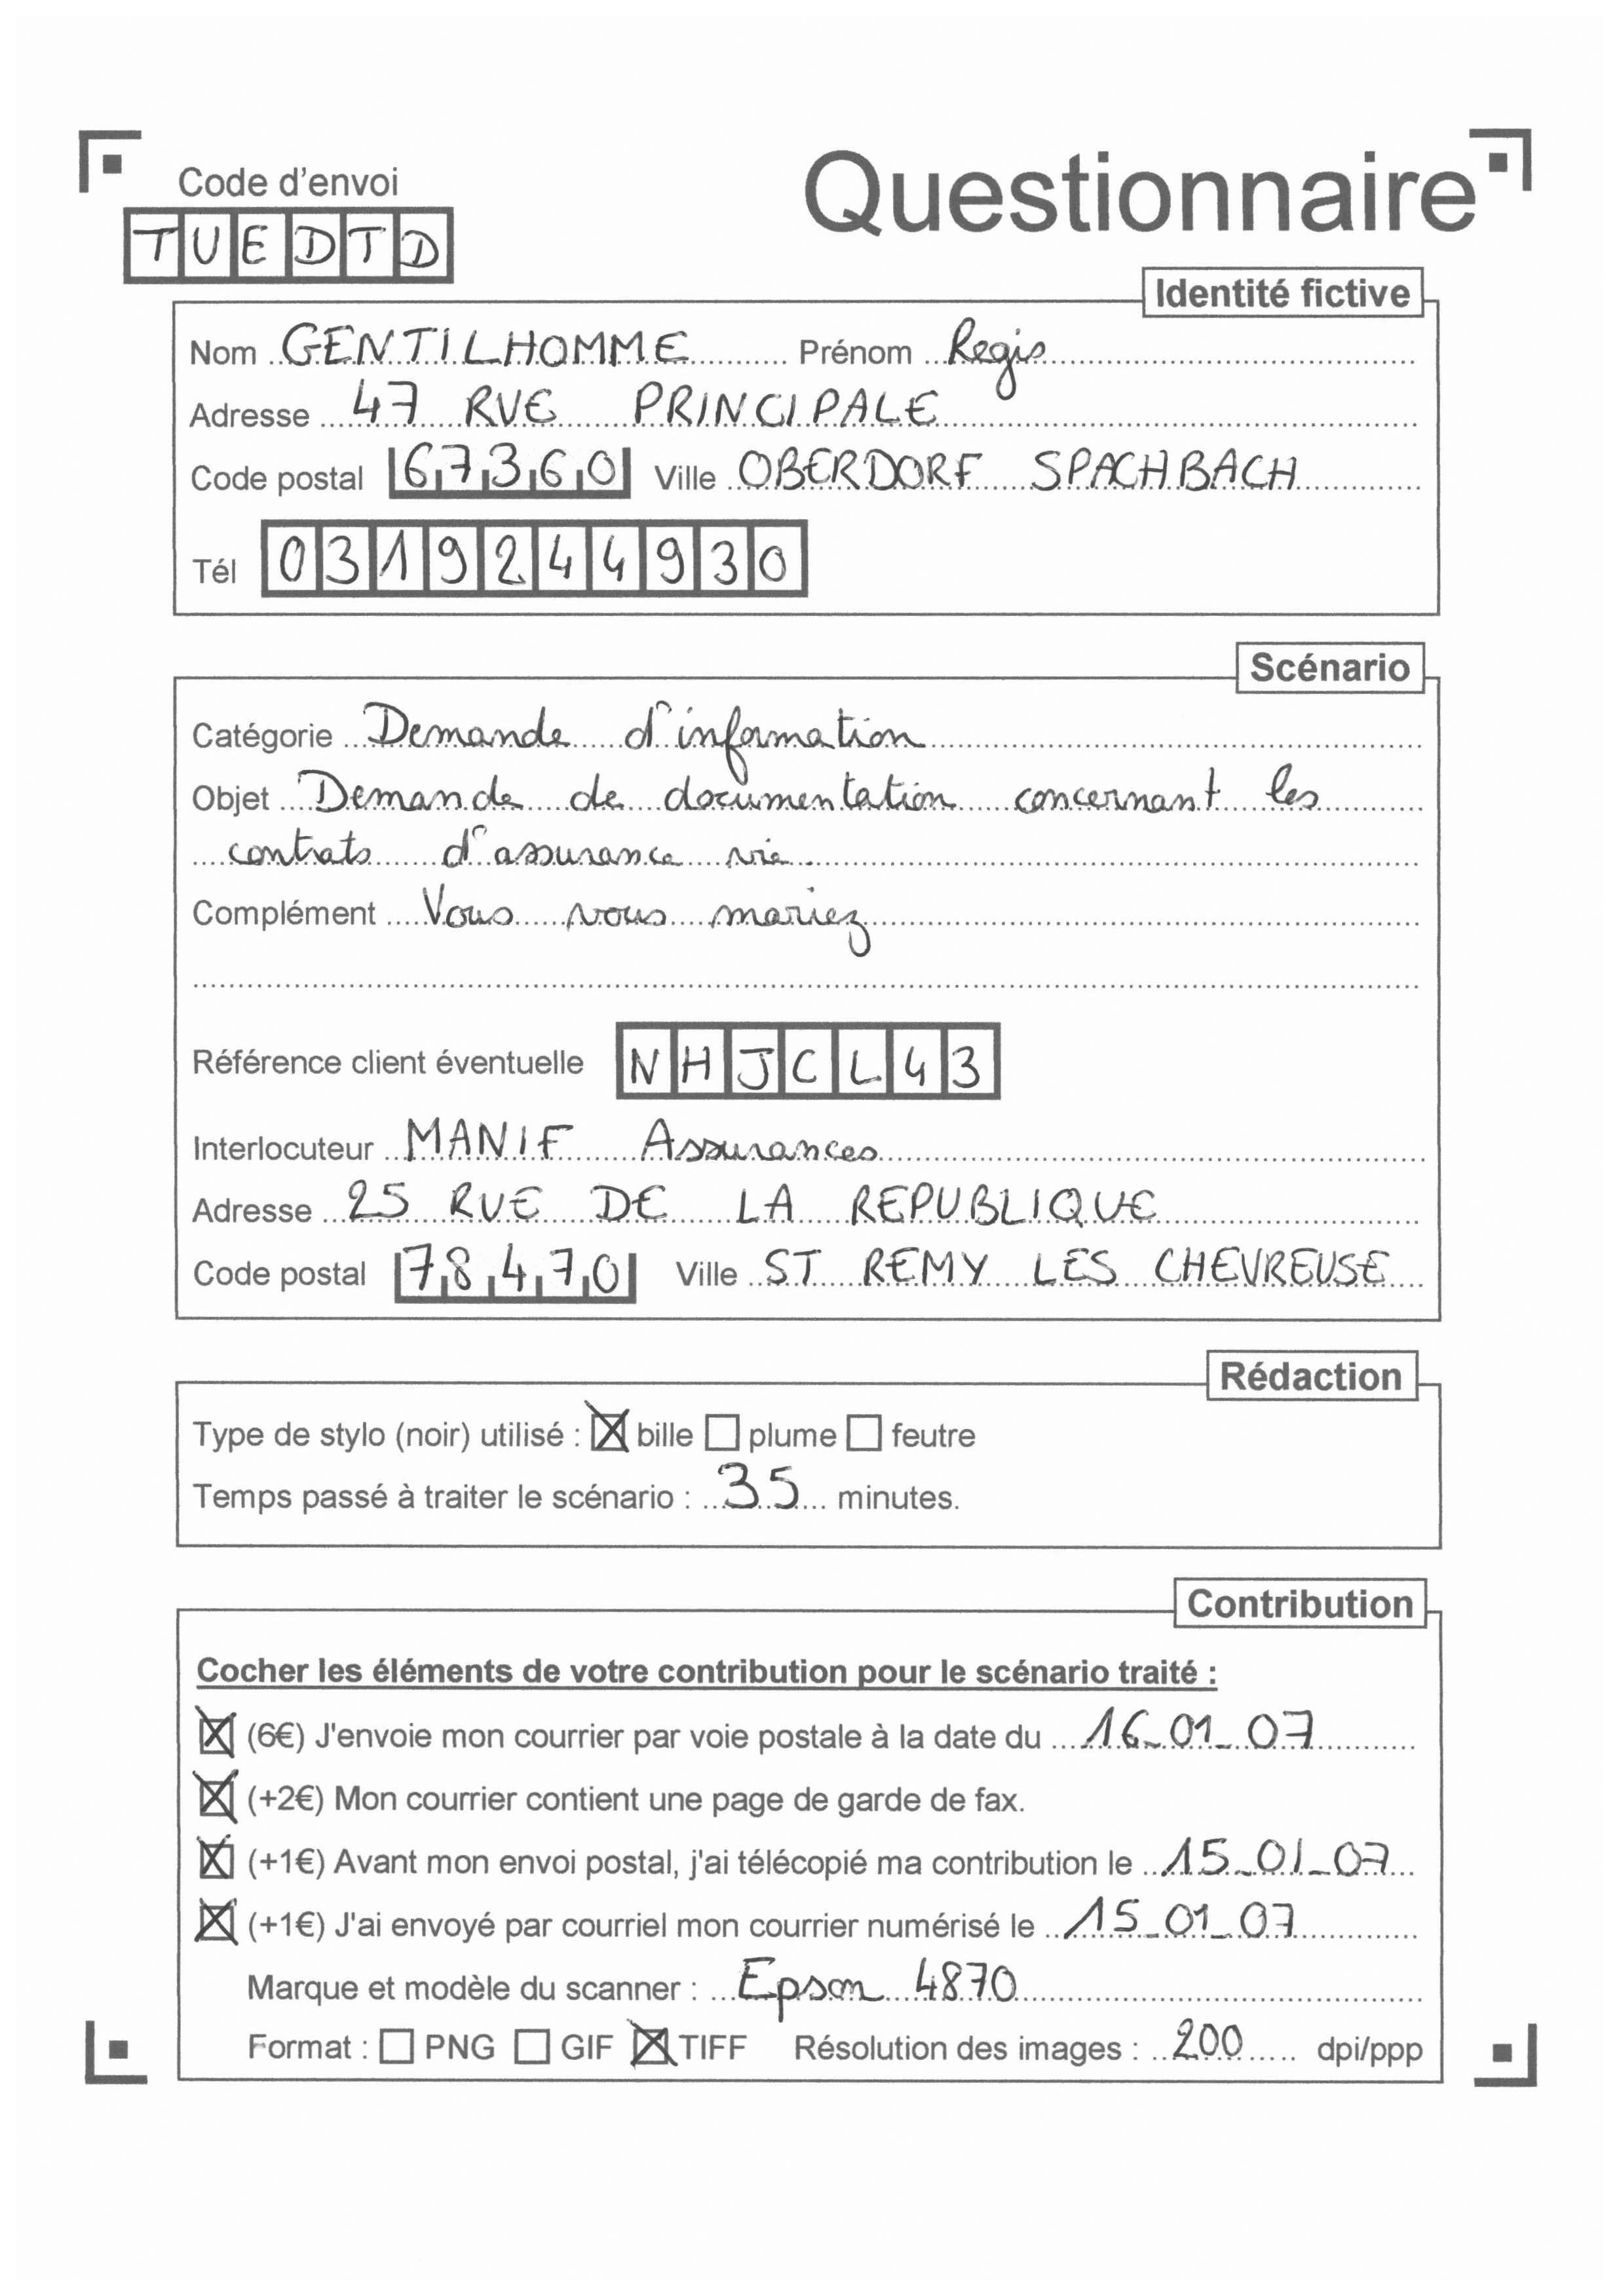 Code d'envoi
Questionnaire
TUEDTD
Identité fictive
Nom GENTILHOMME Prénom Regis
Adresse 47 RUE PRINCIPALE
Code postal 67360 Ville OBERDORF SPACHBACH
Tél 0319244930
Scénario
Catégorie Demande d'information
Objet Demande de documentation concernant les
contrats d'assurance vie.
Complément Vous vous mariez
Référence client éventuelle NHJCL43
Interlocuteur MANIF Assurances
Adresse 25 RUE DE LA REPUBLIQUE
Code postal 78470 Ville ST REMY LES CHEVREUSE
Rédaction
Type de stylo (noir) utilisé : ☒ bille ☐ plume ☐ feutre
Temps passé à traiter le scénario : 35 minutes.
Contribution
Cocher les éléments de votre contribution pour le scénario traité :
☒ (6€) J'envoie mon courrier par voie postale à la date du 16_01_07
☒ (+2€) Mon courrier contient une page de garde de fax.
☒ (+1€) Avant mon envoi postal, j'ai télécopié ma contribution le 15_01_07
☒ (+1€) J'ai envoyé par courriel mon courrier numérisé le 15_01_07
Marque et modèle du scanner : Epson 4870
Format : ☐ PNG ☐ GIF ☒ TIFF Résolution des images : 200 dpi/ppp